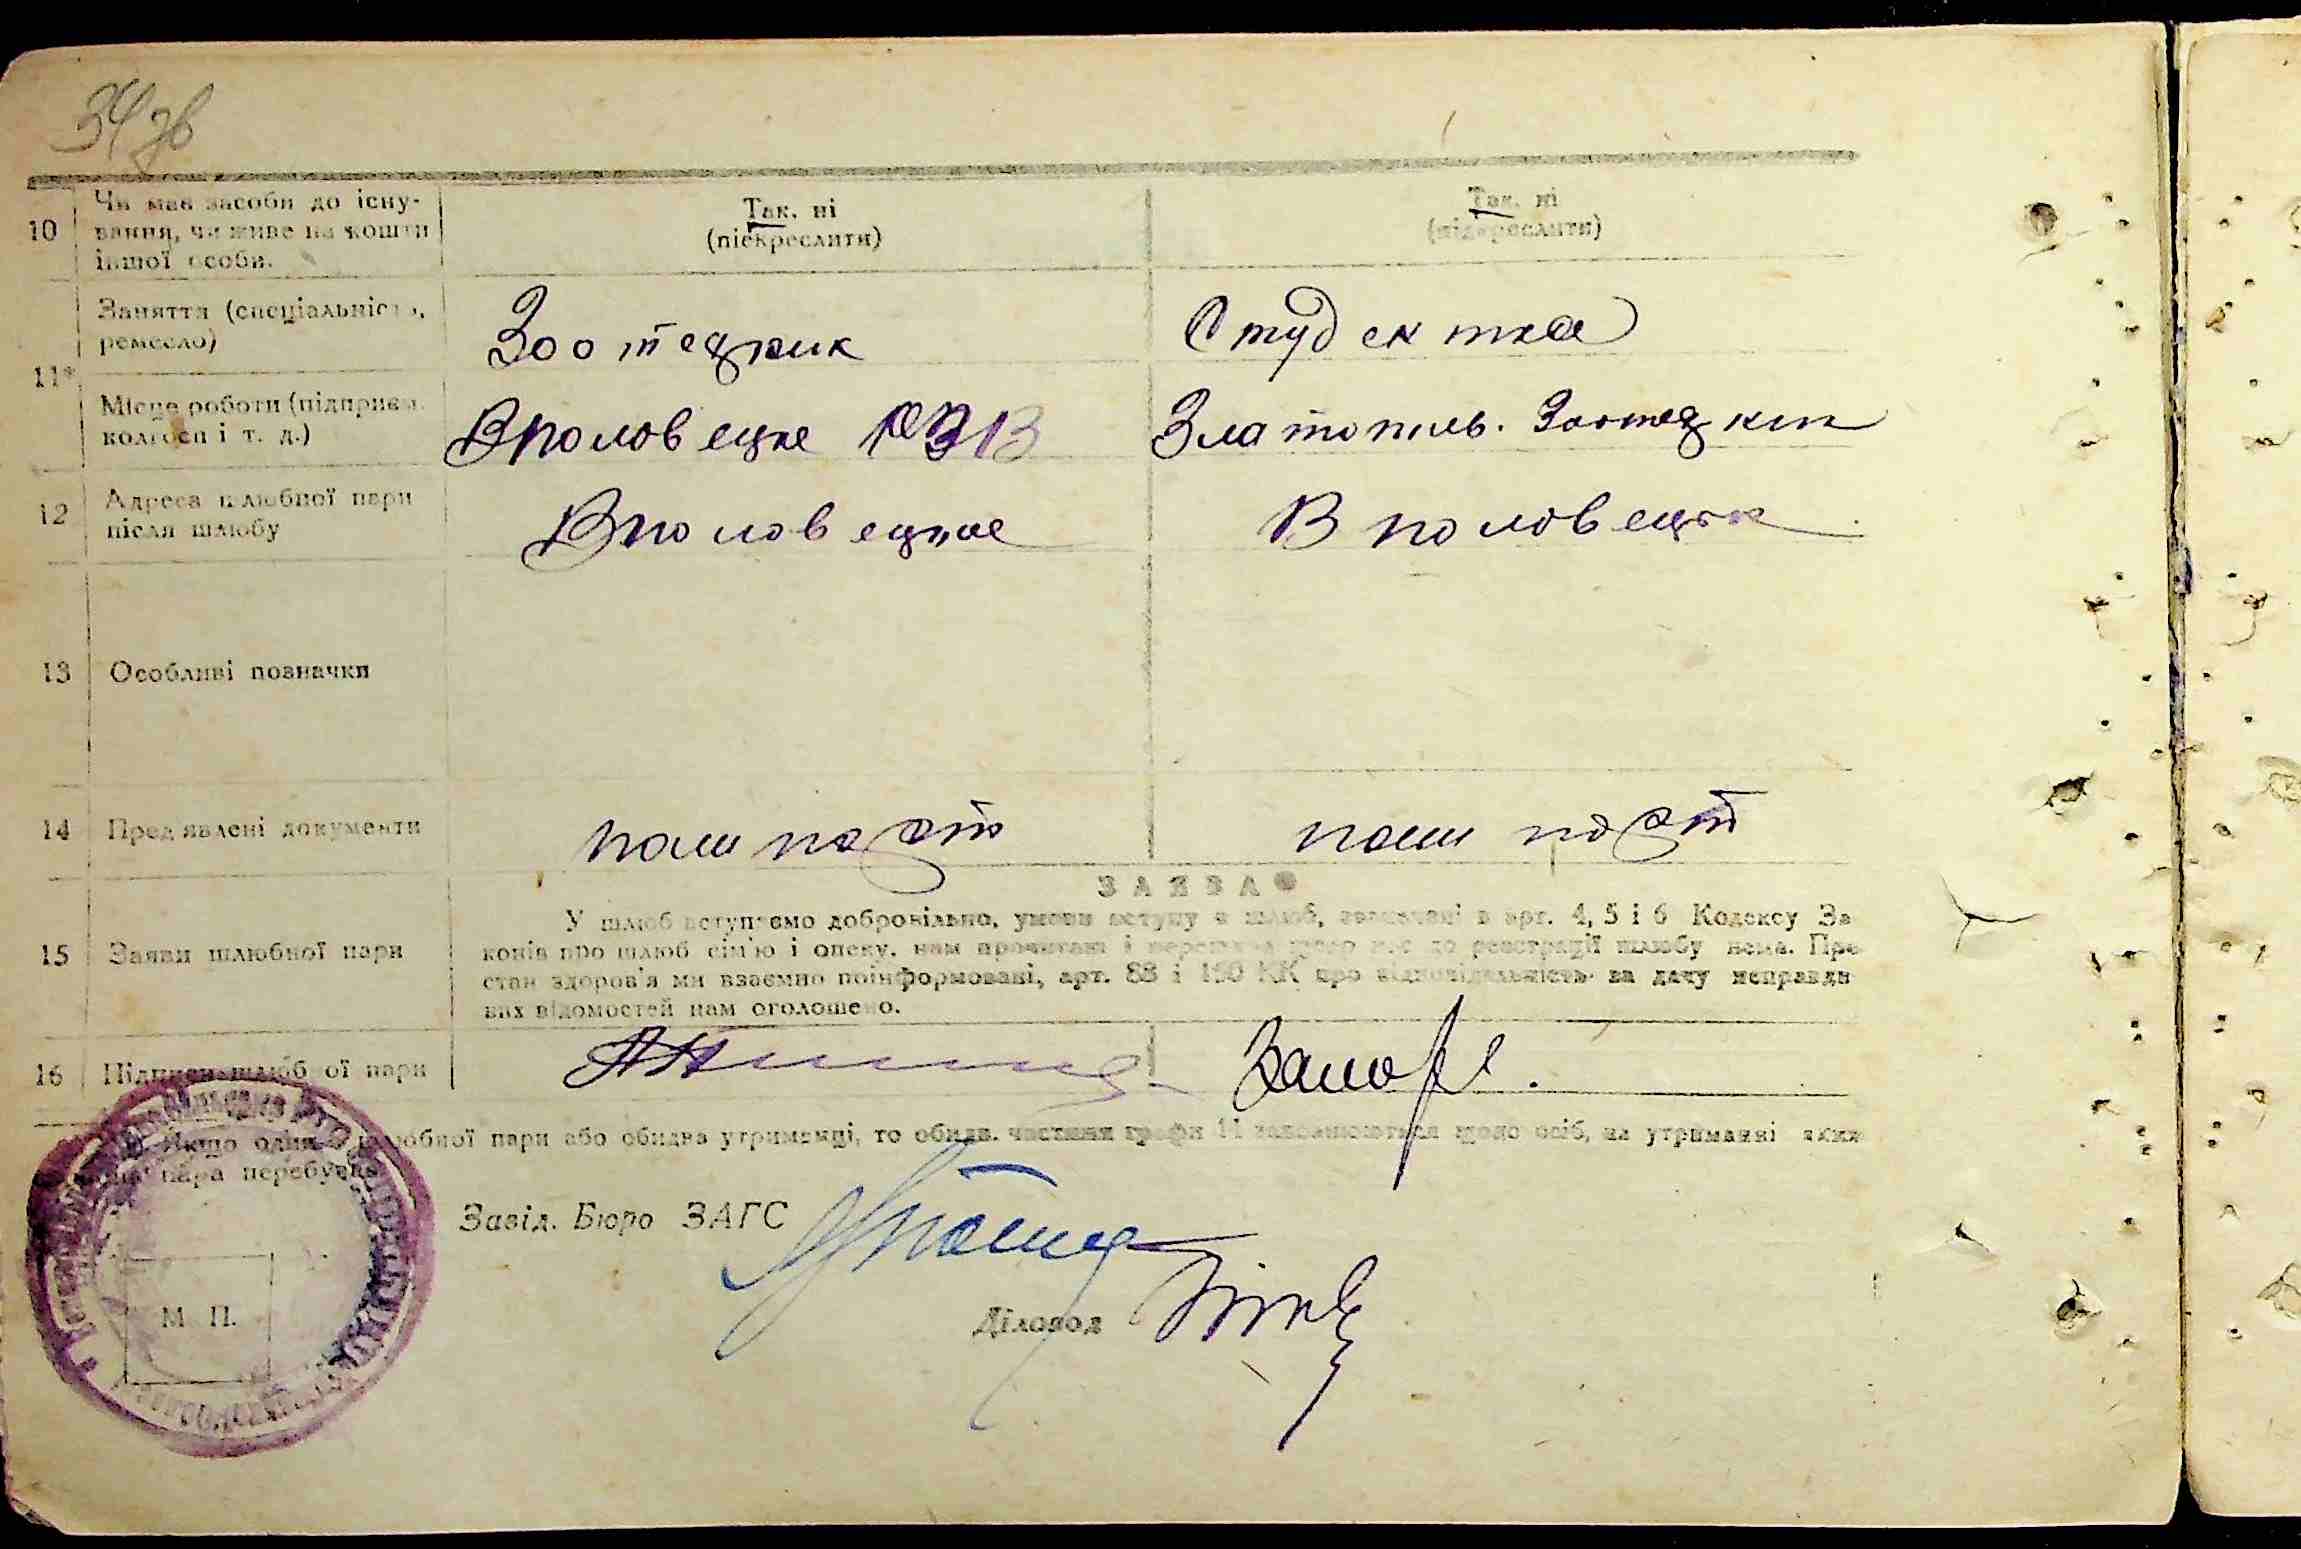 34 зв
10
Чи має засоби до існу-
вання, чи живе на кошти
іншої особи.
Так. ні
(підкреслити)
Так. ні
(підкреслити)
11*
Заняття (спеціальність,
ремесло)
Зоотехник
Студентка
Місце роботи (підприєм.
колгосп і т. д.)
Вполовецке РЗВ
Златопиль. Зоотехник
12
Адреса шлюбної пари
після шлюбу
Вполовецке
Вполовецк
13
Особливі позначки
14
Пред'явлені документи
пашпорт
пашпорт
ЗАЯВА
15
Заяви шлюбної пари
У шлюб вступаємо добровільно, умови вступу в шлюб, зазначені в арт. 4, 5 і 6 Кодексу За
конів про шлюб сім'ю і опеку, нам прочитані і перешкод щодо нас до реєстрації шлюбу нема. Про
стан здоров'я ми взаємно поінформовані, арт. 88 і 190 КК про відповідальність за дачу неправди
вих відомостей нам оголошено.
16
Підписи шлюбної пари
Якщо одна з шлюбної пари або обидва утриманці, то обидв. частини графи 11 заповнюються щодо осіб, на утриманні яких
пара перебуває
Завід. Бюро ЗАГС
Діловод
М. П.